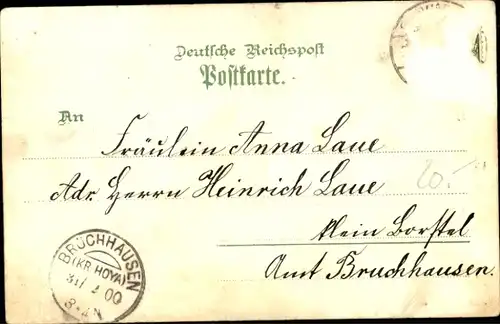 Deutsche Reichspost
Postkarte.
An
Fräulein Anna Laue
Adr. Herrn Heinrich Laue
20.-
klein Borstel
Amt Bruchhausen.
BRUCHHAUSEN
(KR. HOYA)
00